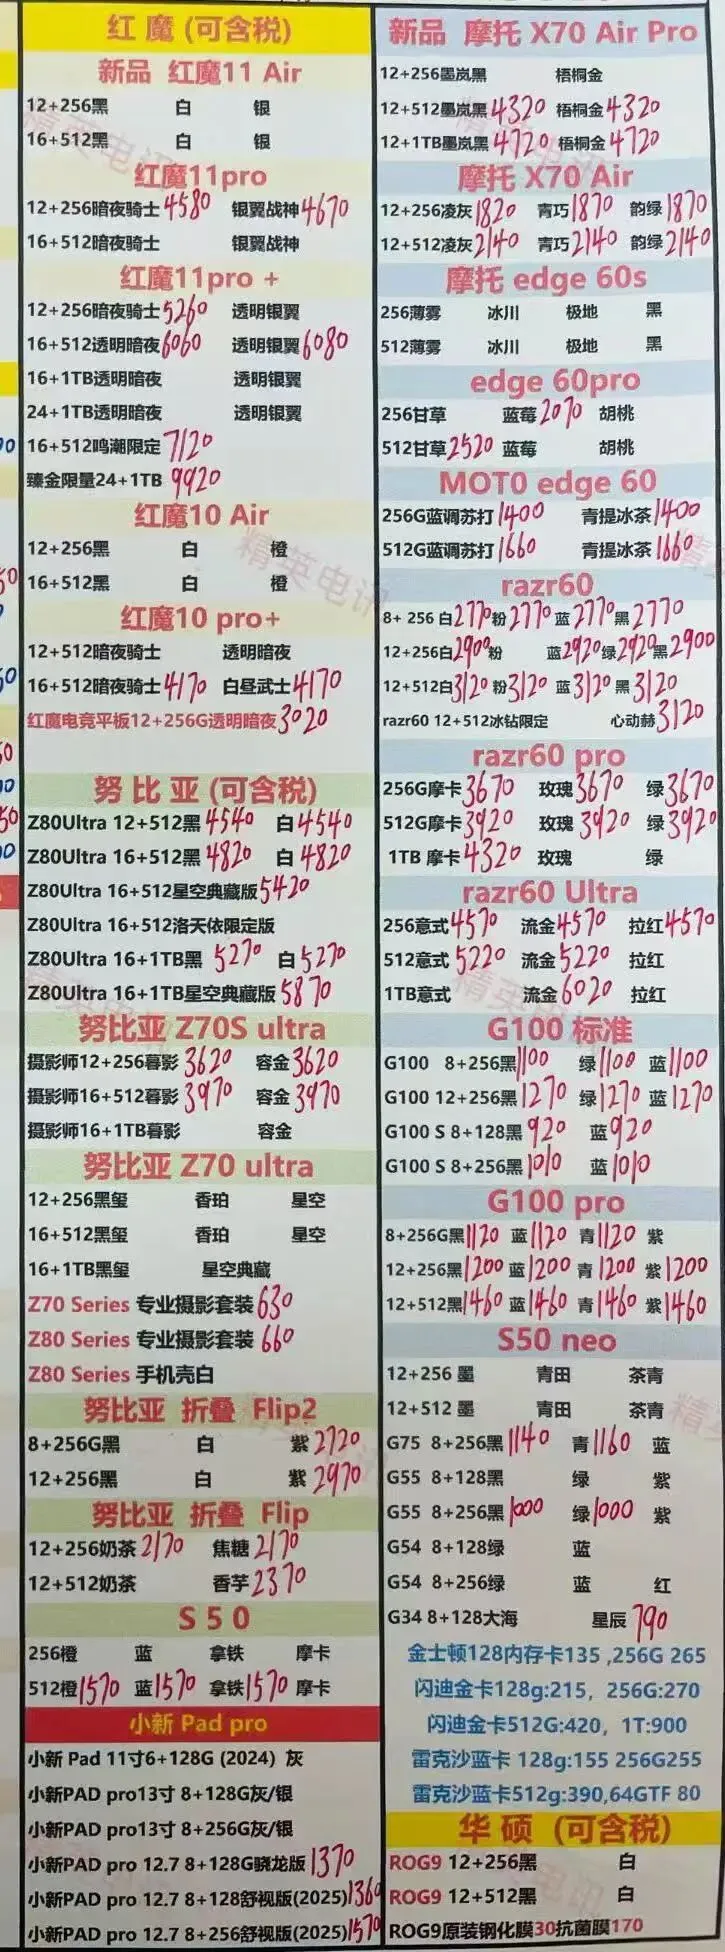 红 魔 (可含税)
新品 红魔11 Air
12+256黑 白 银
16+512黑 白 银
红魔11pro
12+256暗夜骑士4580 银翼战神4670
16+512暗夜骑士 银翼战神
红魔11pro +
12+256暗夜骑士5260 透明银翼
16+512透明暗夜6060 透明银翼6080
16+1TB透明暗夜 透明银翼
24+1TB透明暗夜 透明银翼
16+512鸣潮限定 7120
臻金限量24+1TB 9920
红魔10 Air
12+256黑 白 橙
16+512黑 白 橙
红魔10 pro+
12+512暗夜骑士 透明暗夜
16+512暗夜骑士4170 白昼武士4170
红魔电竞平板12+256G透明暗夜3020
努 比 亚 (可含税)
Z80Ultra 12+512黑4540 白4540
Z80Ultra 16+512黑4820 白4820
Z80Ultra 16+512星空典藏版5420
Z80Ultra 16+512洛天依限定版
Z80Ultra 16+1TB黑 5270 白5270
Z80Ultra 16+1TB星空典藏版5870
努比亚 Z70S ultra
摄影师12+256暮影3620 容金3620
摄影师16+512暮影3970 容金3970
摄影师16+1TB暮影 容金
努比亚 Z70 ultra
12+256黑玺 香珀 星空
16+512黑玺 香珀 星空
16+1TB黑玺 星空典藏
Z70 Series 专业摄影套装630
Z80 Series 专业摄影套装660
Z80 Series 手机壳白
努比亚 折叠 Flip2
8+256G黑 白 紫2720
12+256黑 白 紫2970
努比亚 折叠 Flip
12+256奶茶2170 焦糖2170
12+512奶茶 香芋2370
S 5 0
256橙 蓝 拿铁 摩卡
512橙1570 蓝1570 拿铁1570 摩卡
小新 Pad pro
小新 Pad 11寸6+128G (2024) 灰
小新PAD pro13寸 8+128G灰/银
小新PAD pro13寸 8+256G灰/银
小新PAD pro 12.7 8+128G骁龙版1370
小新PAD pro 12.7 8+128舒视版(2025)1360
小新PAD pro 12.7 8+256舒视版(2025)1570
新品 摩托 X70 Air Pro
12+256墨岚黑 梧桐金
12+512墨岚黑4320 梧桐金4320
12+1TB墨岚黑4720 梧桐金4720
摩托 X70 Air
12+256凌灰1820 青巧1870 韵绿1870
12+512凌灰2140 青巧2140 韵绿2140
摩托 edge 60s
256薄雾 冰川 极地 黑
512薄雾 冰川 极地 黑
edge 60pro
256甘草 蓝莓2070 胡桃
512甘草2520 蓝莓 胡桃
MOT0 edge 60
256G蓝调苏打1400 青提冰茶1400
512G蓝调苏打1660 青提冰茶1660
razr60
8+ 256 白2770粉2770 蓝2770黑2770
12+256白2900粉 蓝2920绿2920黑2900
12+512白3120粉3120 蓝3120 黑3120
razr60 12+512冰钻限定 心动赫3120
razr60 pro
256G摩卡3670 玫瑰3670 绿3670
512G摩卡3920 玫瑰3920 绿3920
1TB 摩卡4320 玫瑰 绿
razr60 Ultra
256意式4570 流金4570 拉红4570
512意式5220 流金5220 拉红
1TB意式 流金6020 拉红
G100 标准
G100 8+256黑1100 绿1100 蓝1100
G100 12+256黑1270 绿1270 蓝1270
G100 S 8+128黑920 蓝920
G100 S 8+256黑1010 蓝1010
G100 pro
8+256G黑1120 蓝1120 青1120 紫
12+256黑1200 蓝1200 青1200 紫1200
12+512黑1460 蓝1460 青1460 紫1460
S50 neo
12+256 墨 青田 茶青
12+512 墨 青田 茶青
G75 8+256黑1140 青1160 蓝
G55 8+128黑 绿 紫
G55 8+256黑1000 绿1000 紫
G54 8+128绿 蓝
G54 8+256绿 蓝 红
G34 8+128大海 星辰790
金士顿128内存卡135 ,256G 265
闪迪金卡128g:215, 256G:270
闪迪金卡512G:420, 1T:900
雷克沙蓝卡 128g:155 256G255
雷克沙蓝卡512g:390,64GTF 80
华 硕 (可含税)
ROG9 12+256黑 白
ROG9 12+512黑 白
ROG9原装钢化膜30抗菌膜170
精英电讯